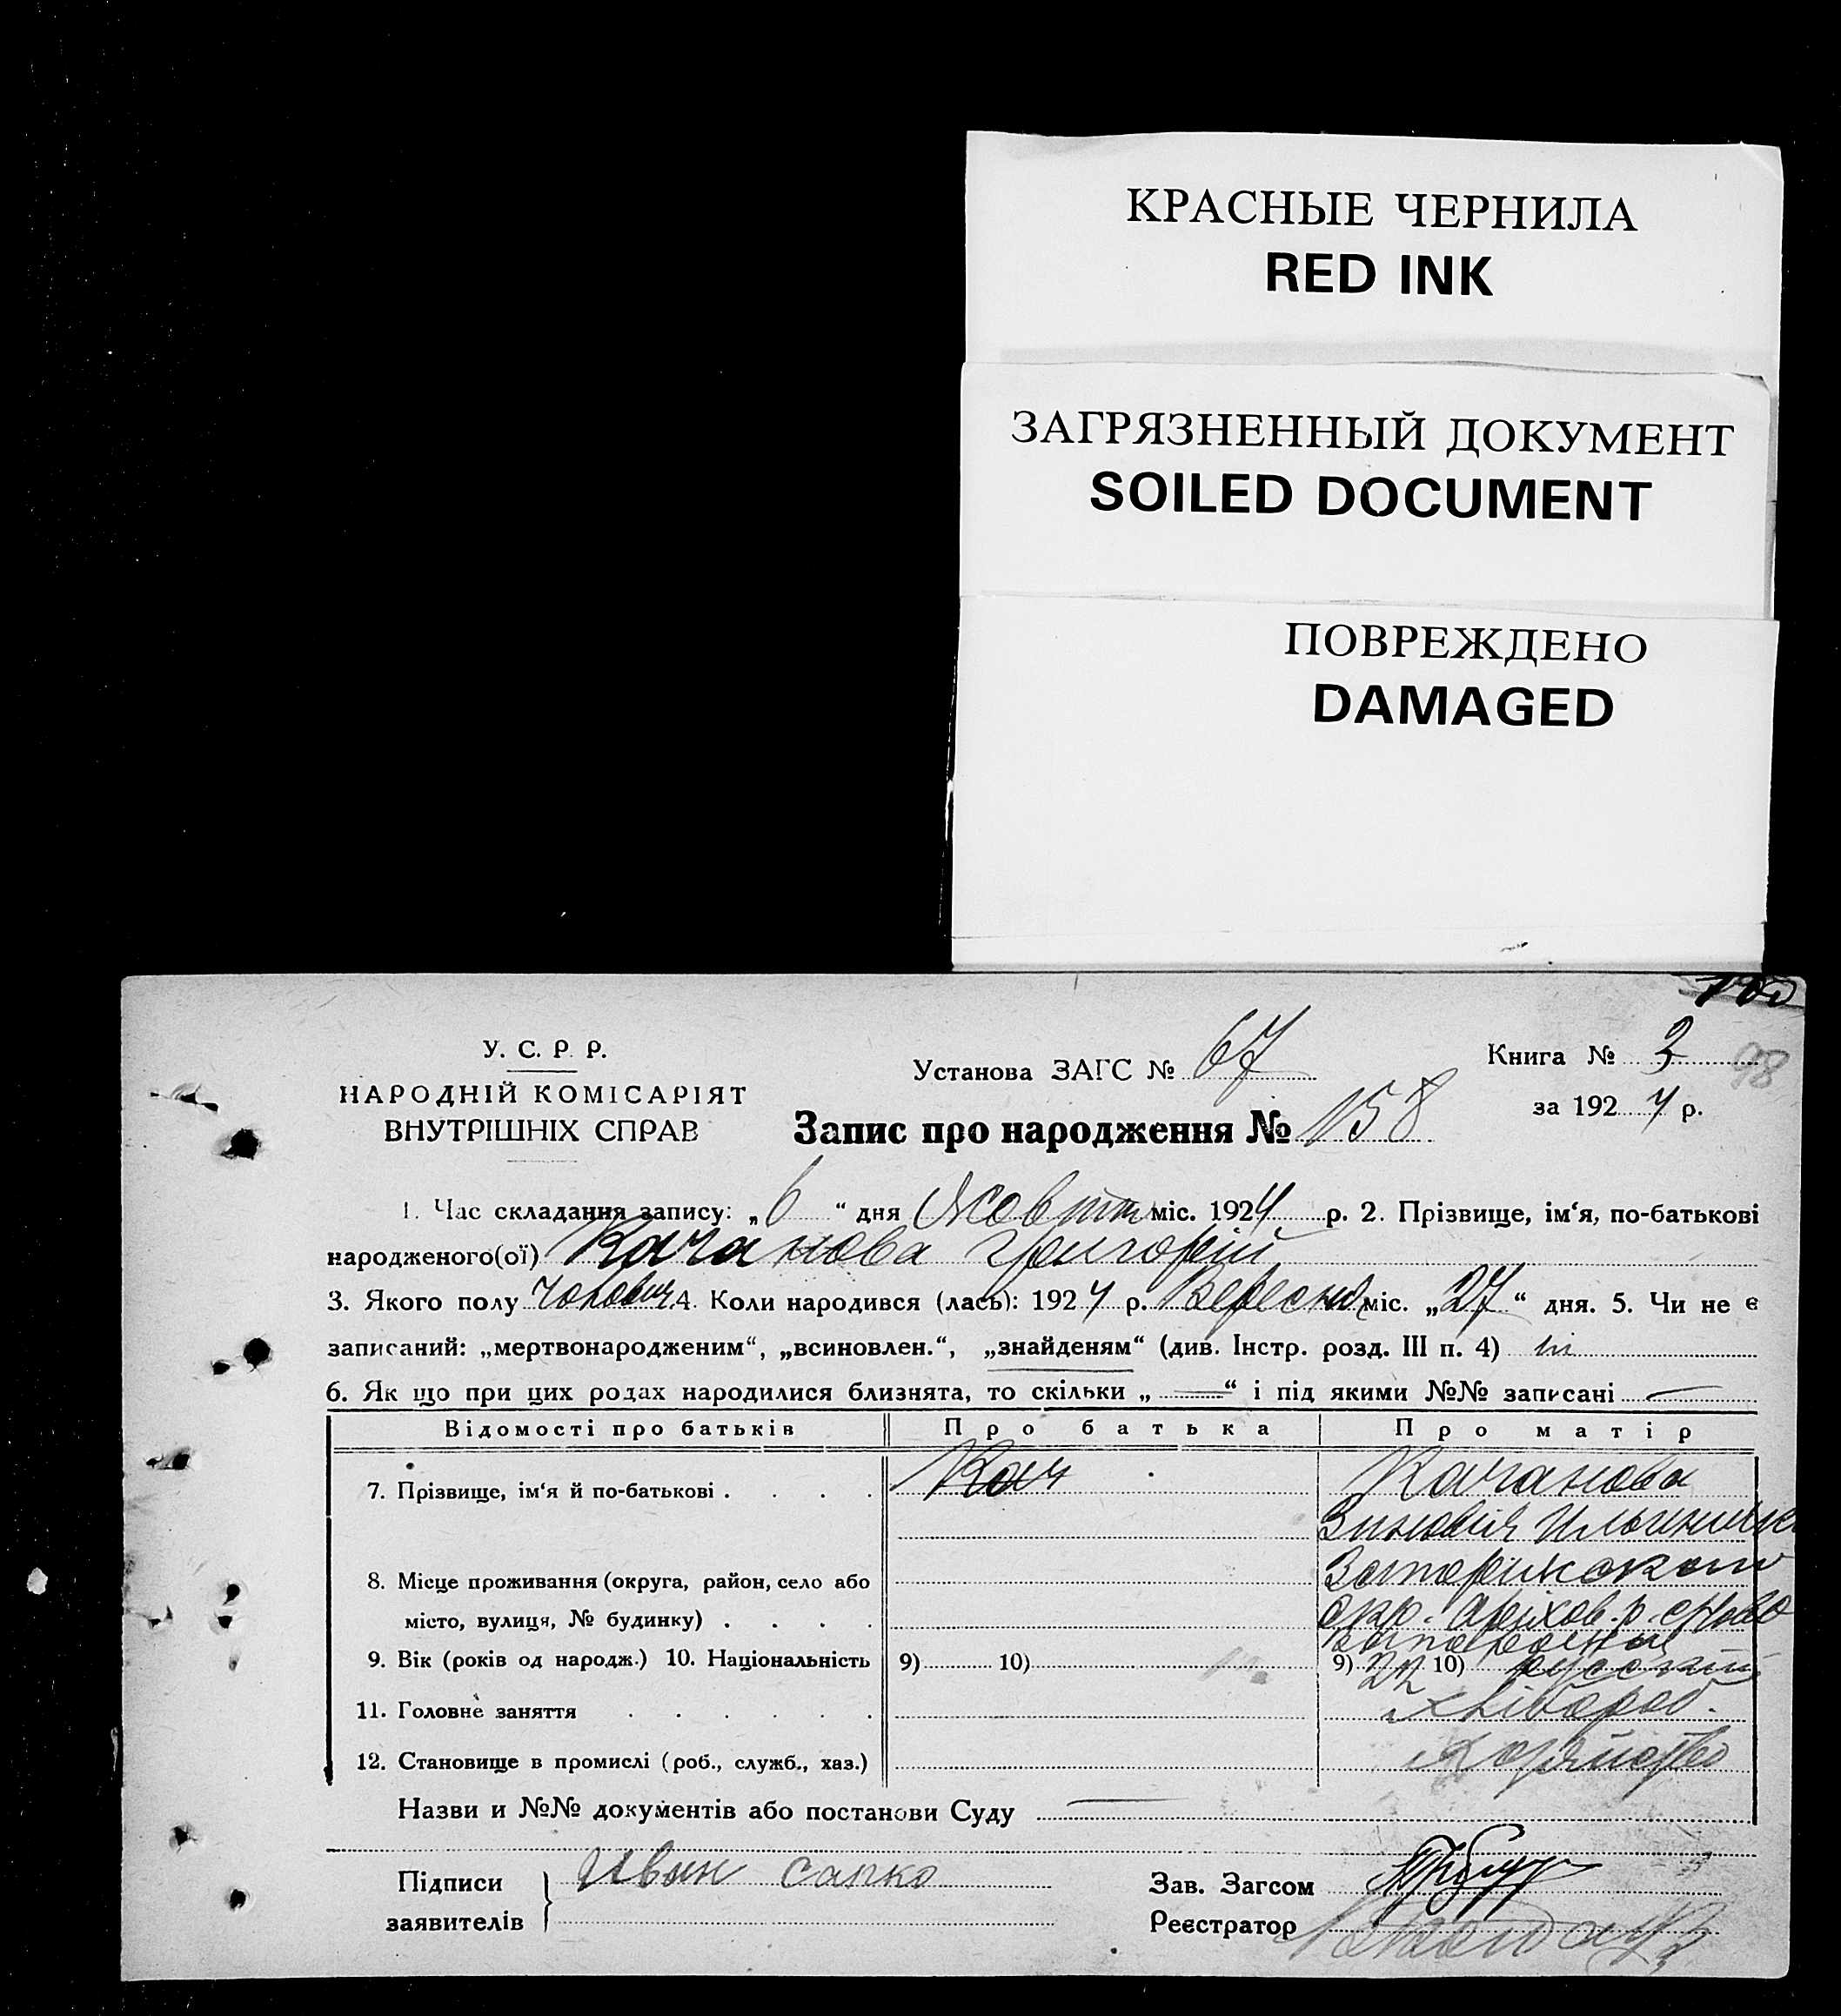 КРАСНЫЕ ЧЕРНИЛА
RED INK
ЗАГРЯЗНЕННЫЙ ДОКУМЕНТ
SOILED DOCUMENT
ПОВРЕЖДЕНО
DAMAGED
У. С. Р. Р.
НАРОДНІЙ КОМІСАРІЯТ
ВНУТРІШНІХ СПРАВ
Установа ЗАГС № 67
Книга № 3
98
за 1924 р.
Запис про народження № 158
1. Час складання запису: „6“ дня Жовтня міс. 1924 р. 2. Прізвище, ім‘я, по-батькові
народженого(ої) Качанова Григорій
3. Якого полу Чоловіч 4. Коли народився (лась): 1924 р. Вересня міс. „27“ дня. 5. Чи не є
записаний: „мертвонародженим“, „всиновлен.“, „знайденям“ (див. Інстр. розд. III п. 4) ні
6. Як що при цих родах народилися близнята, то скільки „ — “ і під якими №№ записані —
Відомості про батьків Про батька Про матір
7. Прізвище, ім‘я й по-батькові . . . . Кач Качанова
8. Місце проживання (округа, район, село або
місто, вулиця, № будинку) . . . . окр. Оріхов. р. с Ново
9. Вік (років од народж.) 10. Національність 9) 10) 9) 22 10) русский
11. Головне заняття . . . . . . хлібороб.
12. Становище в промислі (роб., служб., хаз.)
Назви и №№ документів або постанови Суду —
Підписи
заявителів
Иван сапко
Зав. Загсом
Реєстратор